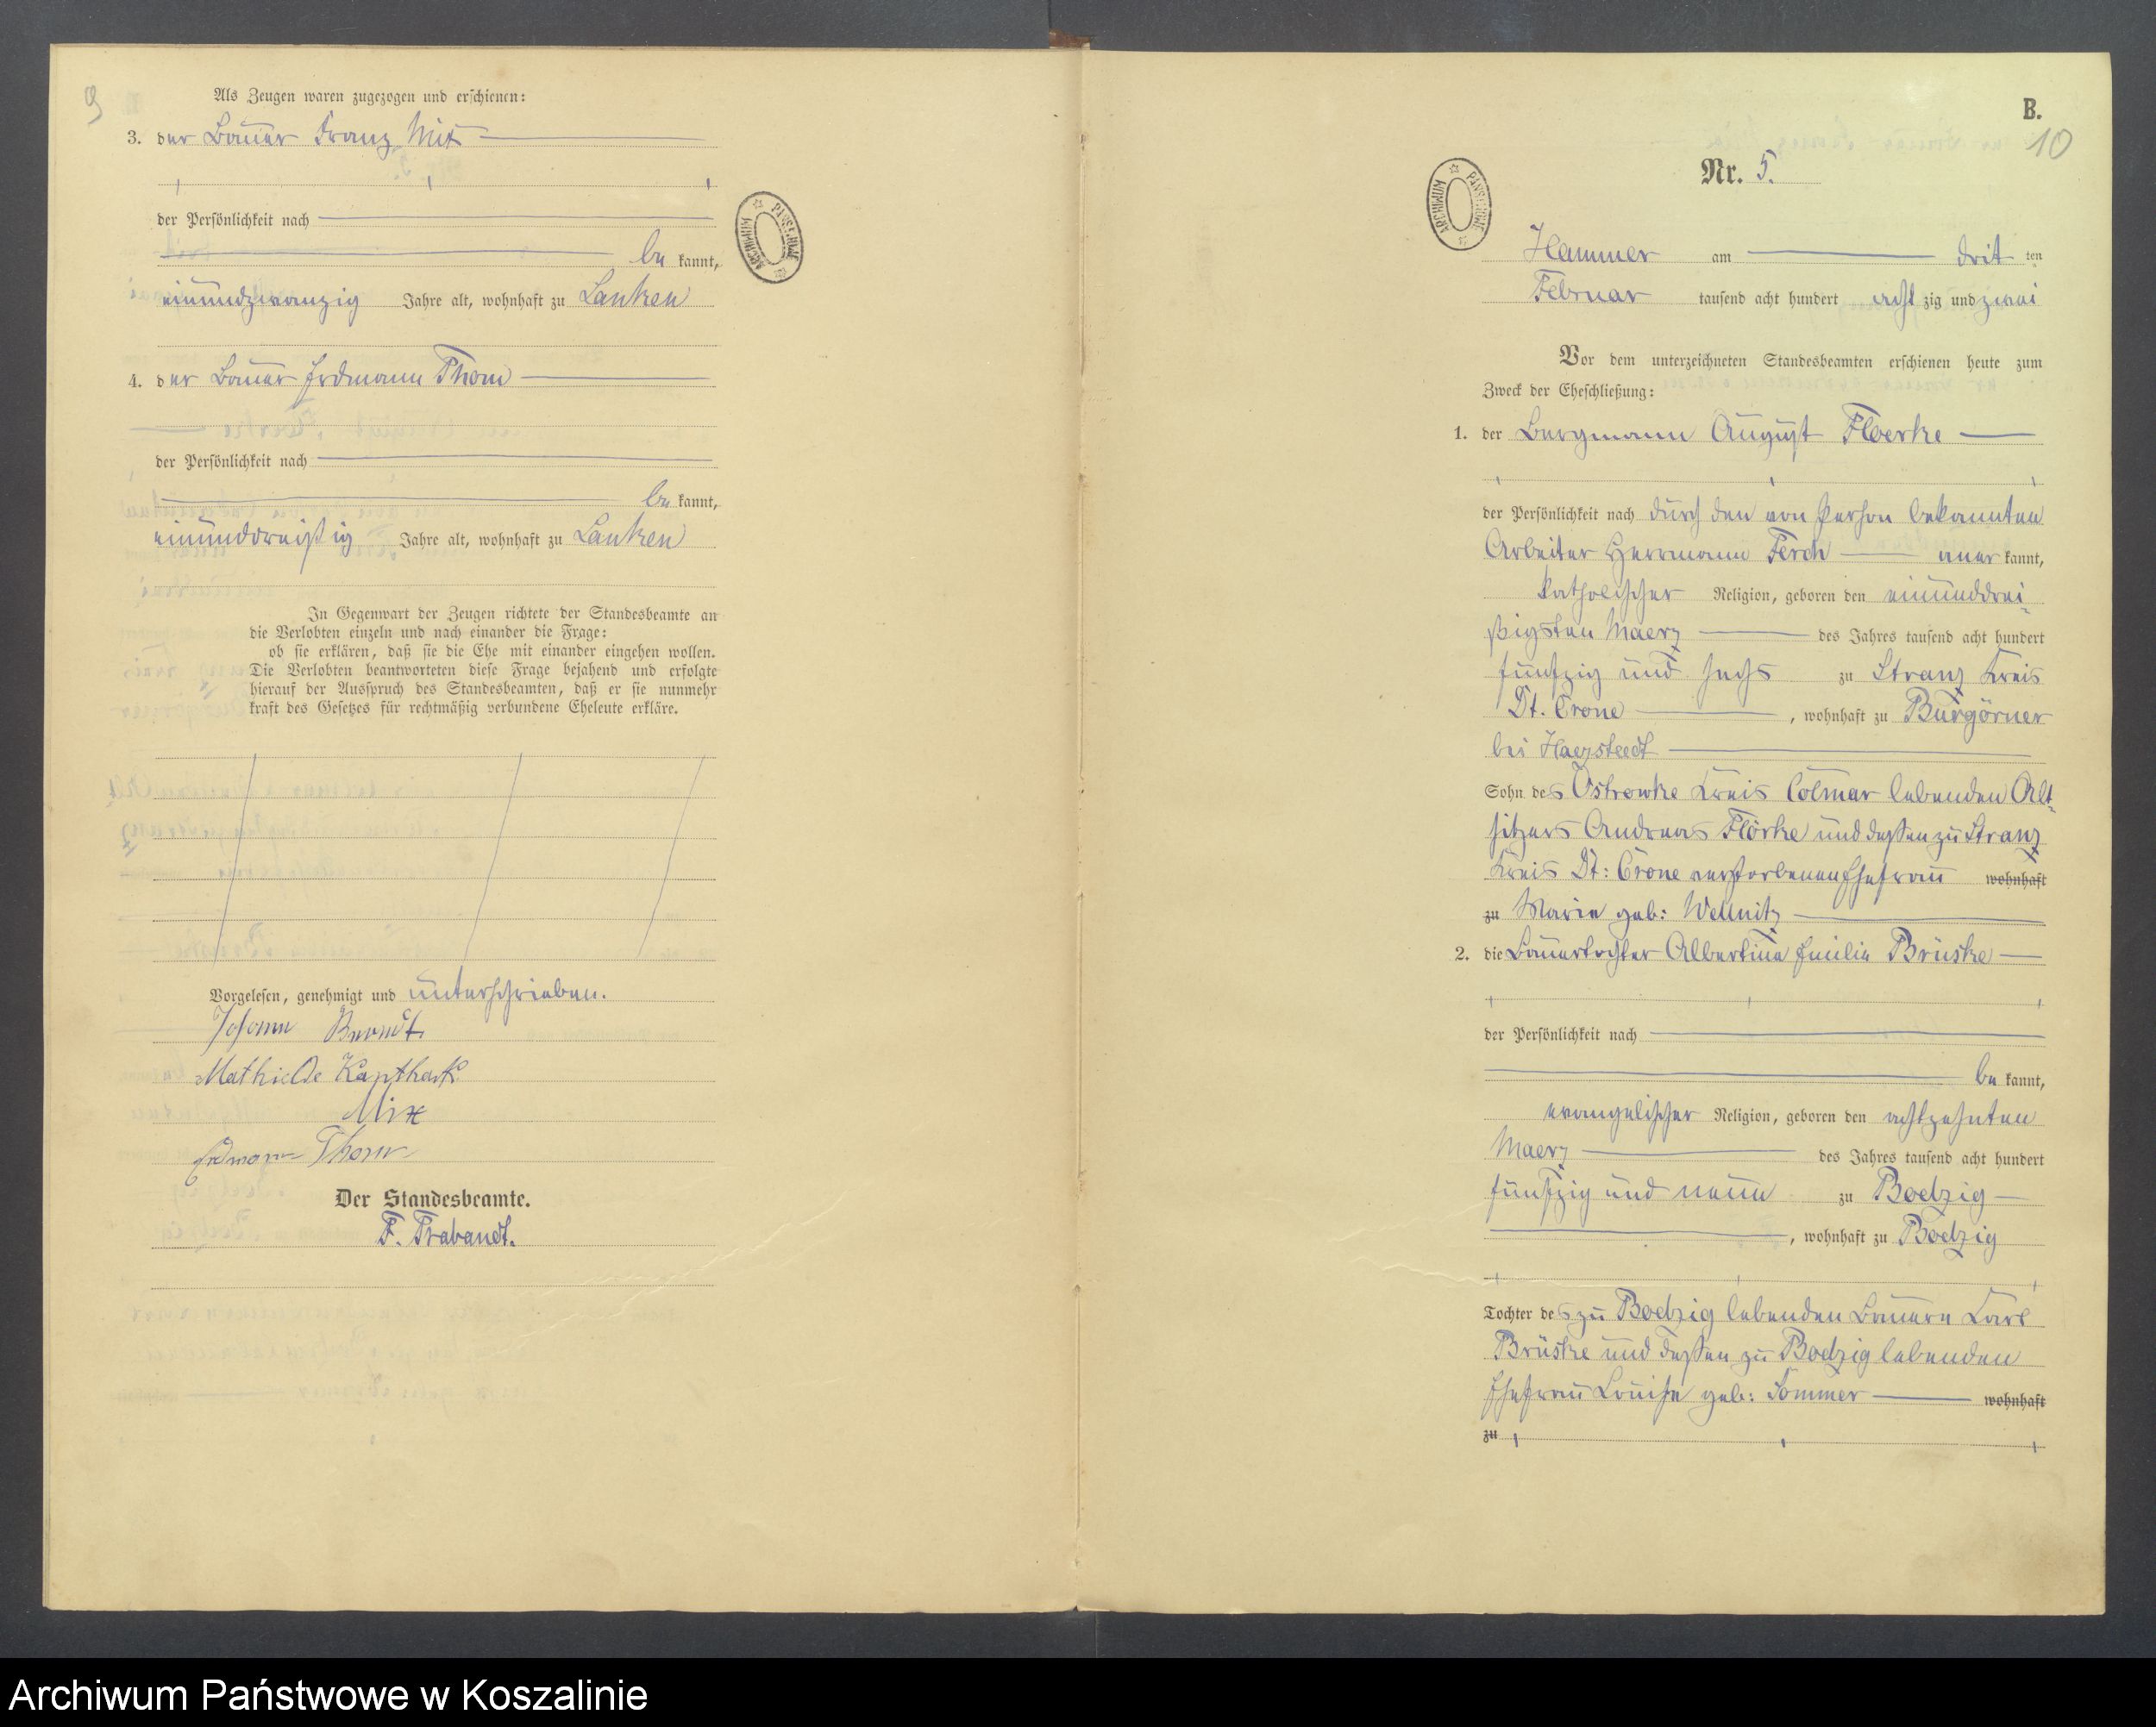 9
Als Zeugen waren zugezogen und erschienen:
3. der Bauer Franz Mix
der Persönlichkeit nach
be kannt,
einundzwanzig Jahre alt, wohnhaft zu Lanken
4. der Bauer Erdmann Thom
der Persönlichkeit nach
be kannt,
einunddreißig Jahre alt, wohnhaft zu Lanken
In Gegenwart der Zeugen richtete der Standesbeamte an
die Verlobten einzeln und nach einander die Frage:
ob sie erklären, daß sie die Ehe mit einander eingehen wollen.
Die Verlobten beantworteten diese Frage bejahend und erfolgte
hierauf der Ausspruch des Standesbeamten, daß er sie nunmehr
kraft des Gesetzes für rechtmäßig verbundene Eheleute erkläre.
Vorgelesen, genehmigt und unterschrieben.
Johann Brandt
Mathilde
Mix
Erdmann Thom
Der Standesbeamte.
F. Trabandt.
ARCHIWUM PAŃSTWOWE
B.
10
Nr. 5.
ARCHIWUM PAŃSTWOWE
Hammer am drit ten
Februar tausend acht hundert acht zig und zwei
Vor dem unterzeichneten Standesbeamten erschienen heute zum
Zweck der Eheschließung:
1. der Bergmann August Floerke
der Persönlichkeit nach durch den von Person bekannten
Arbeiter Herrmann Ferch aner kannt,
katholischer Religion, geboren den einunddrei-
ßigsten Maerz des Jahres tausend acht hundert
fünfzig und sechs zu Stranz Kreis
Dt. Crone, wohnhaft zu Burgörner
bei Haezstedt
Sohn des Ostrowke Kreis Colmar lebenden Alt-
sitzers Andreas Flörke und dessen zu Stranz
Kreis Dt: Crone verstorbenen Ehefrau wohnhaft
zu Marie geb: Wellnitz
2. die Bauertochter Albertine Emilie Brüske
der Persönlichkeit nach
be kannt,
evangelischer Religion, geboren den achtzehnten
Maerz des Jahres tausend acht hundert
fünfzig und neun zu Boelzig
, wohnhaft zu Boelzig
Tochter des zu Boelzig lebenden Bauern Carl
Brüske und dessen zu Boelzig lebenden
Ehefrau Louise geb: Sommer wohnhaft
zu
Archiwum Państwowe w Koszalinie